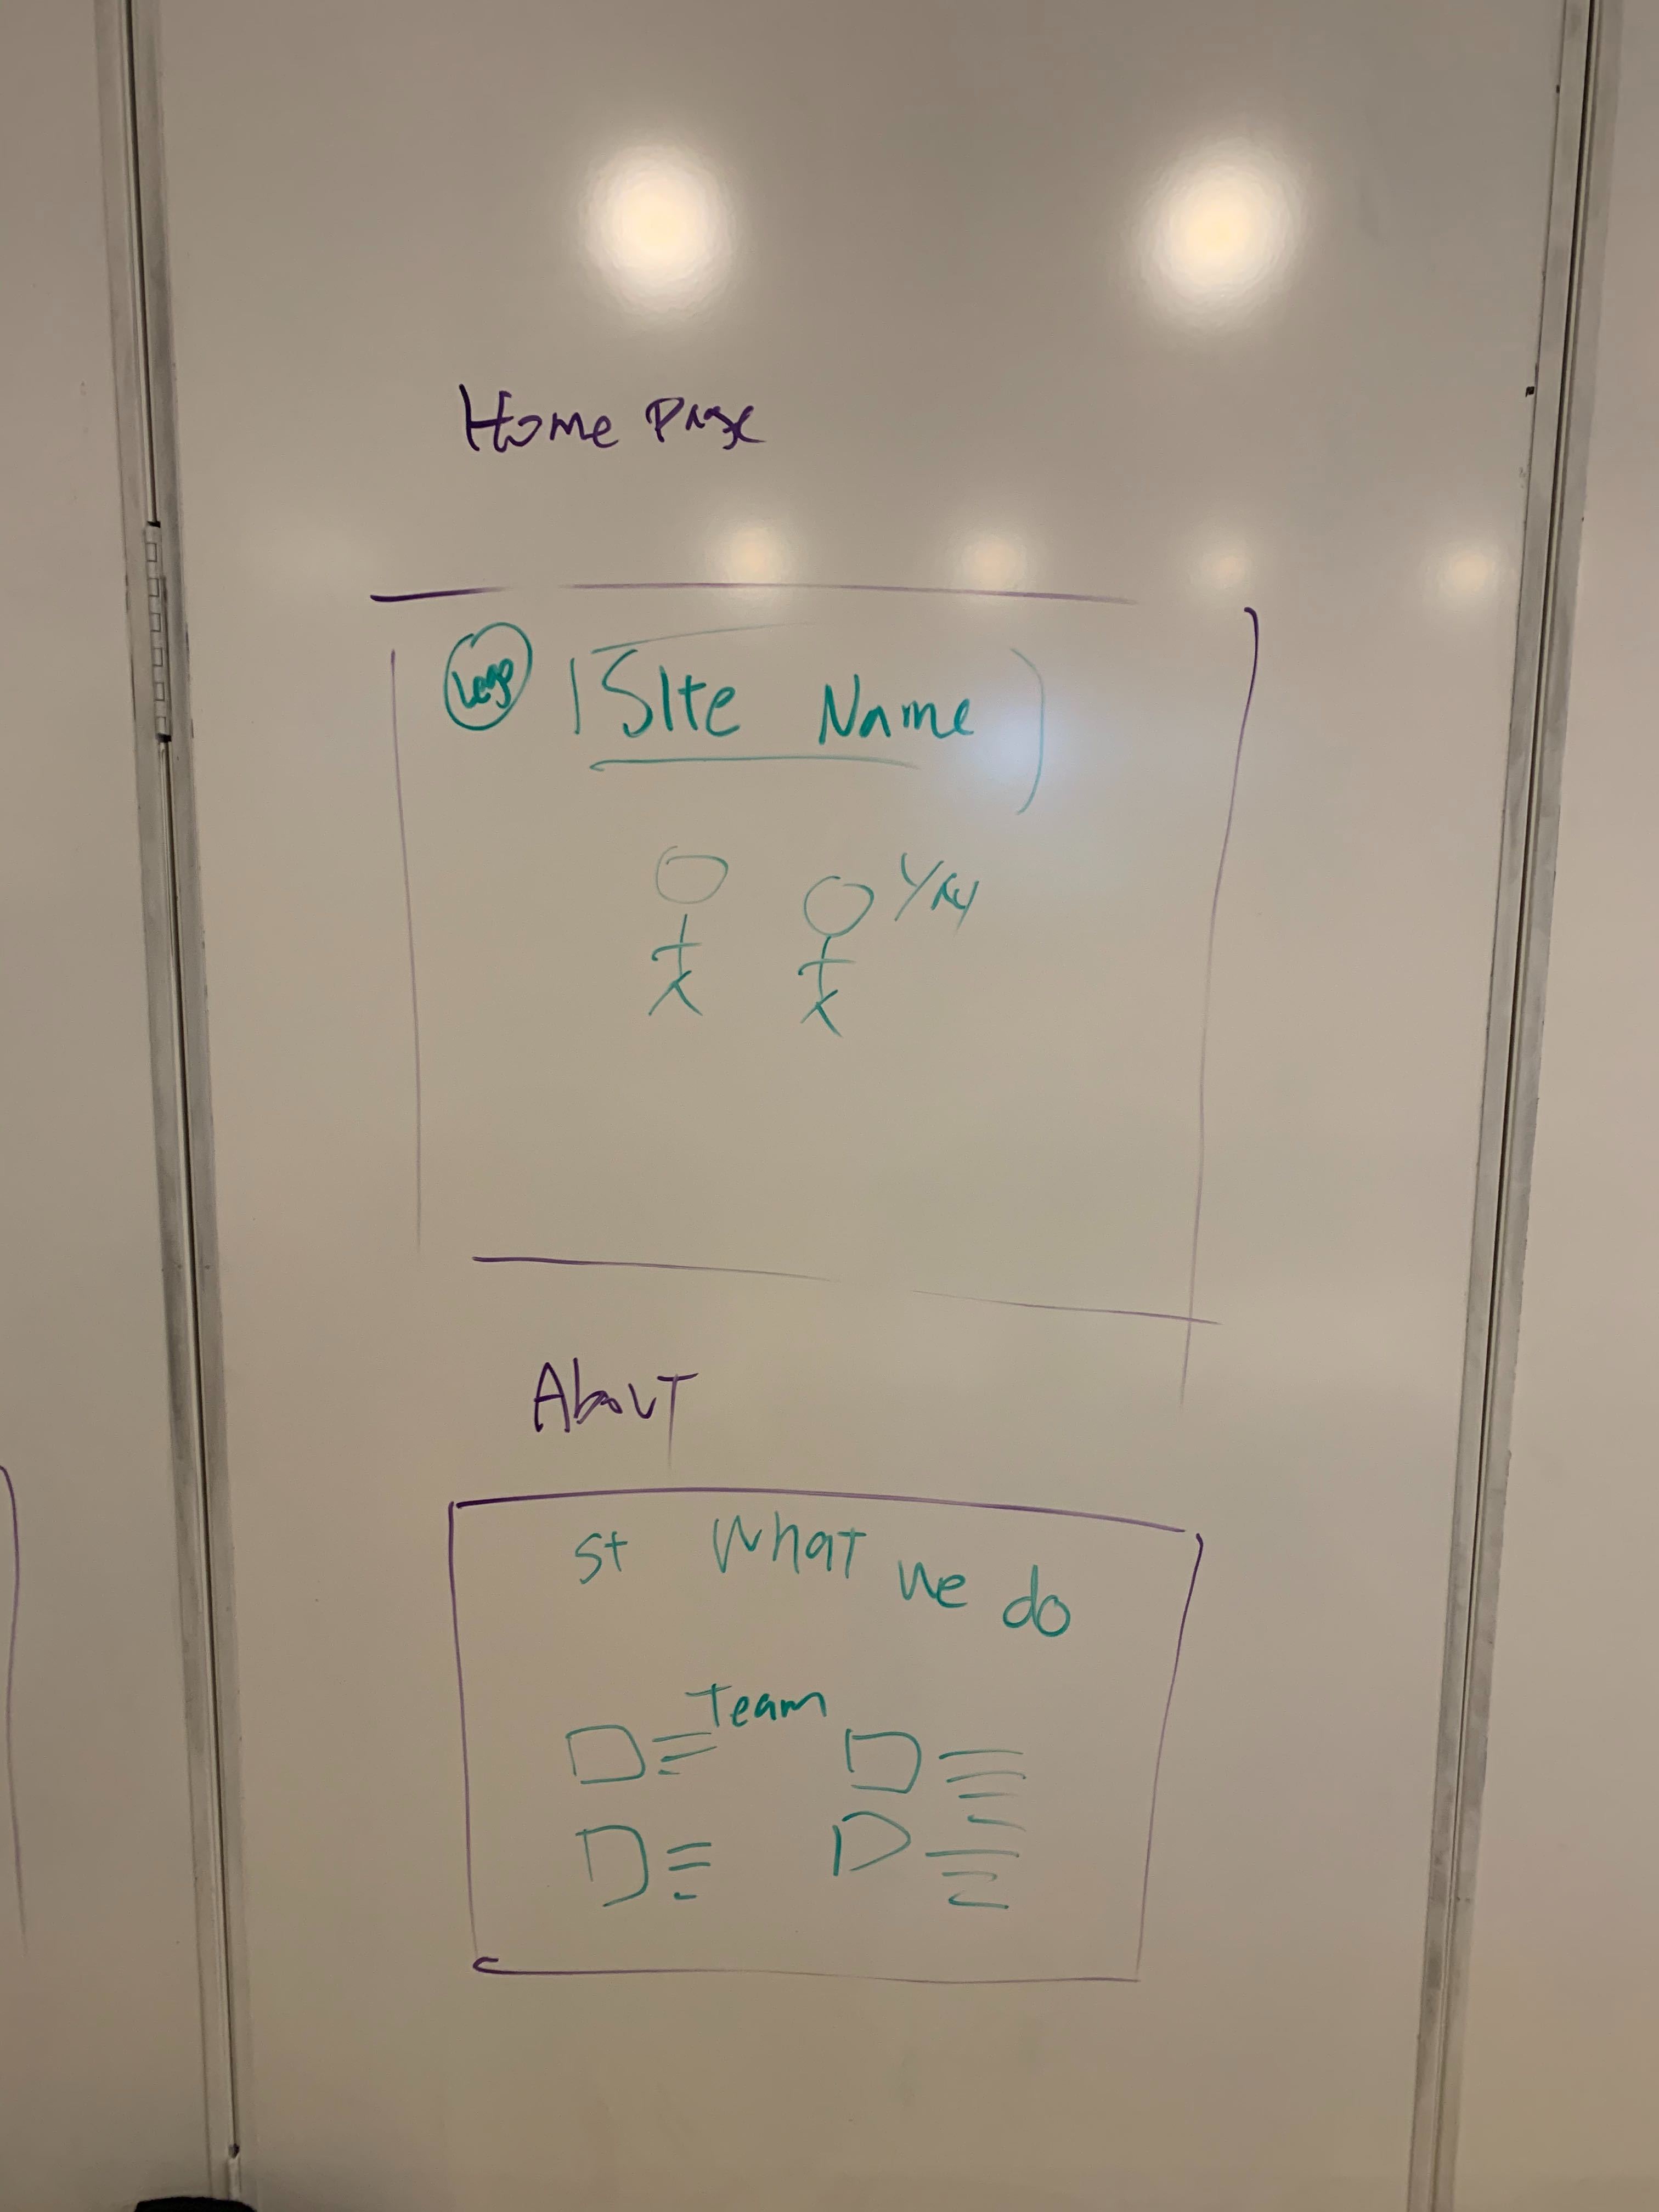 Home Page
Logo
Site Name
Yay
About
St What we do
Team